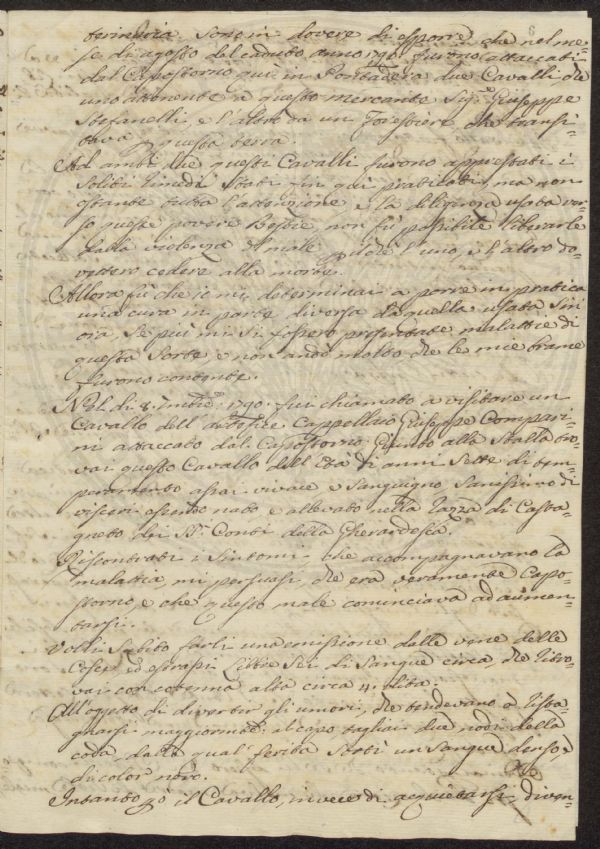 terinaria. Sono in dovere di esporre che nel me-
se di agosto del caduto anno 1790. furono attaccati
dal Capostorno quì in Pontadera due Cavalli, che
uno attenente a questo mercante Sig.e Giuseppe
Stefanelli, e l'altro da un Forestiere che transi-
tava p questa terra.
Ad ambi due questi Cavalli furono apprestati i
soliti rimedi stati fin quì praticati, ma non
ostante tutta l'attenzione, e la diligenza usata ver-
so queste povere Bestie, non fù possibile liberarle
dalla violenza del male p lochè l'uno, e l'altro do-
vettero cedere alla morte.
Allora fù che io mi determinai a porre in pratica
una cura in parte diversa da quella usata sin
ora, se più mi si fossero presentate malattie di
questa sorte e non andò molto che le mie brame
furono contente.
Nel dì 8. 1790. fui chiamato a visitare un
Cavallo dell' artefice Cappellaio Giuseppe Compari-
ni attaccato dal Capostorno. Giunto alla stalla tro-
vai questo Cavallo dell'Età di anni sette di tem-
peramento assai vivace e sanguigno sanissimo di
visceri essendo nato e allevato nella razza di Casta-
gneto dei SS.ri Conti della Gherardesca.
Riscontrati i sintomi, che accompagnavano la
malattia, mi persuasi, che era veramente Capo-
storno, e che questo male cominciava ad aumen-
tarsi.
Volli subito farli una emissione dalle vene delle
Cosce ed estrassi Libbre sei di sangue circa che ritro-
vai con cotenna alta circa 4. dita.
All'oggetto di divertir gli umori, che tendevano a rista-
gnarsi maggiormente il capo tagliai due nodi della
coda, dalla qual ferita sortì un sangue denso, e
di color nero.
Intanto p ò il Cavallo, invece di acquietarsi, diven-